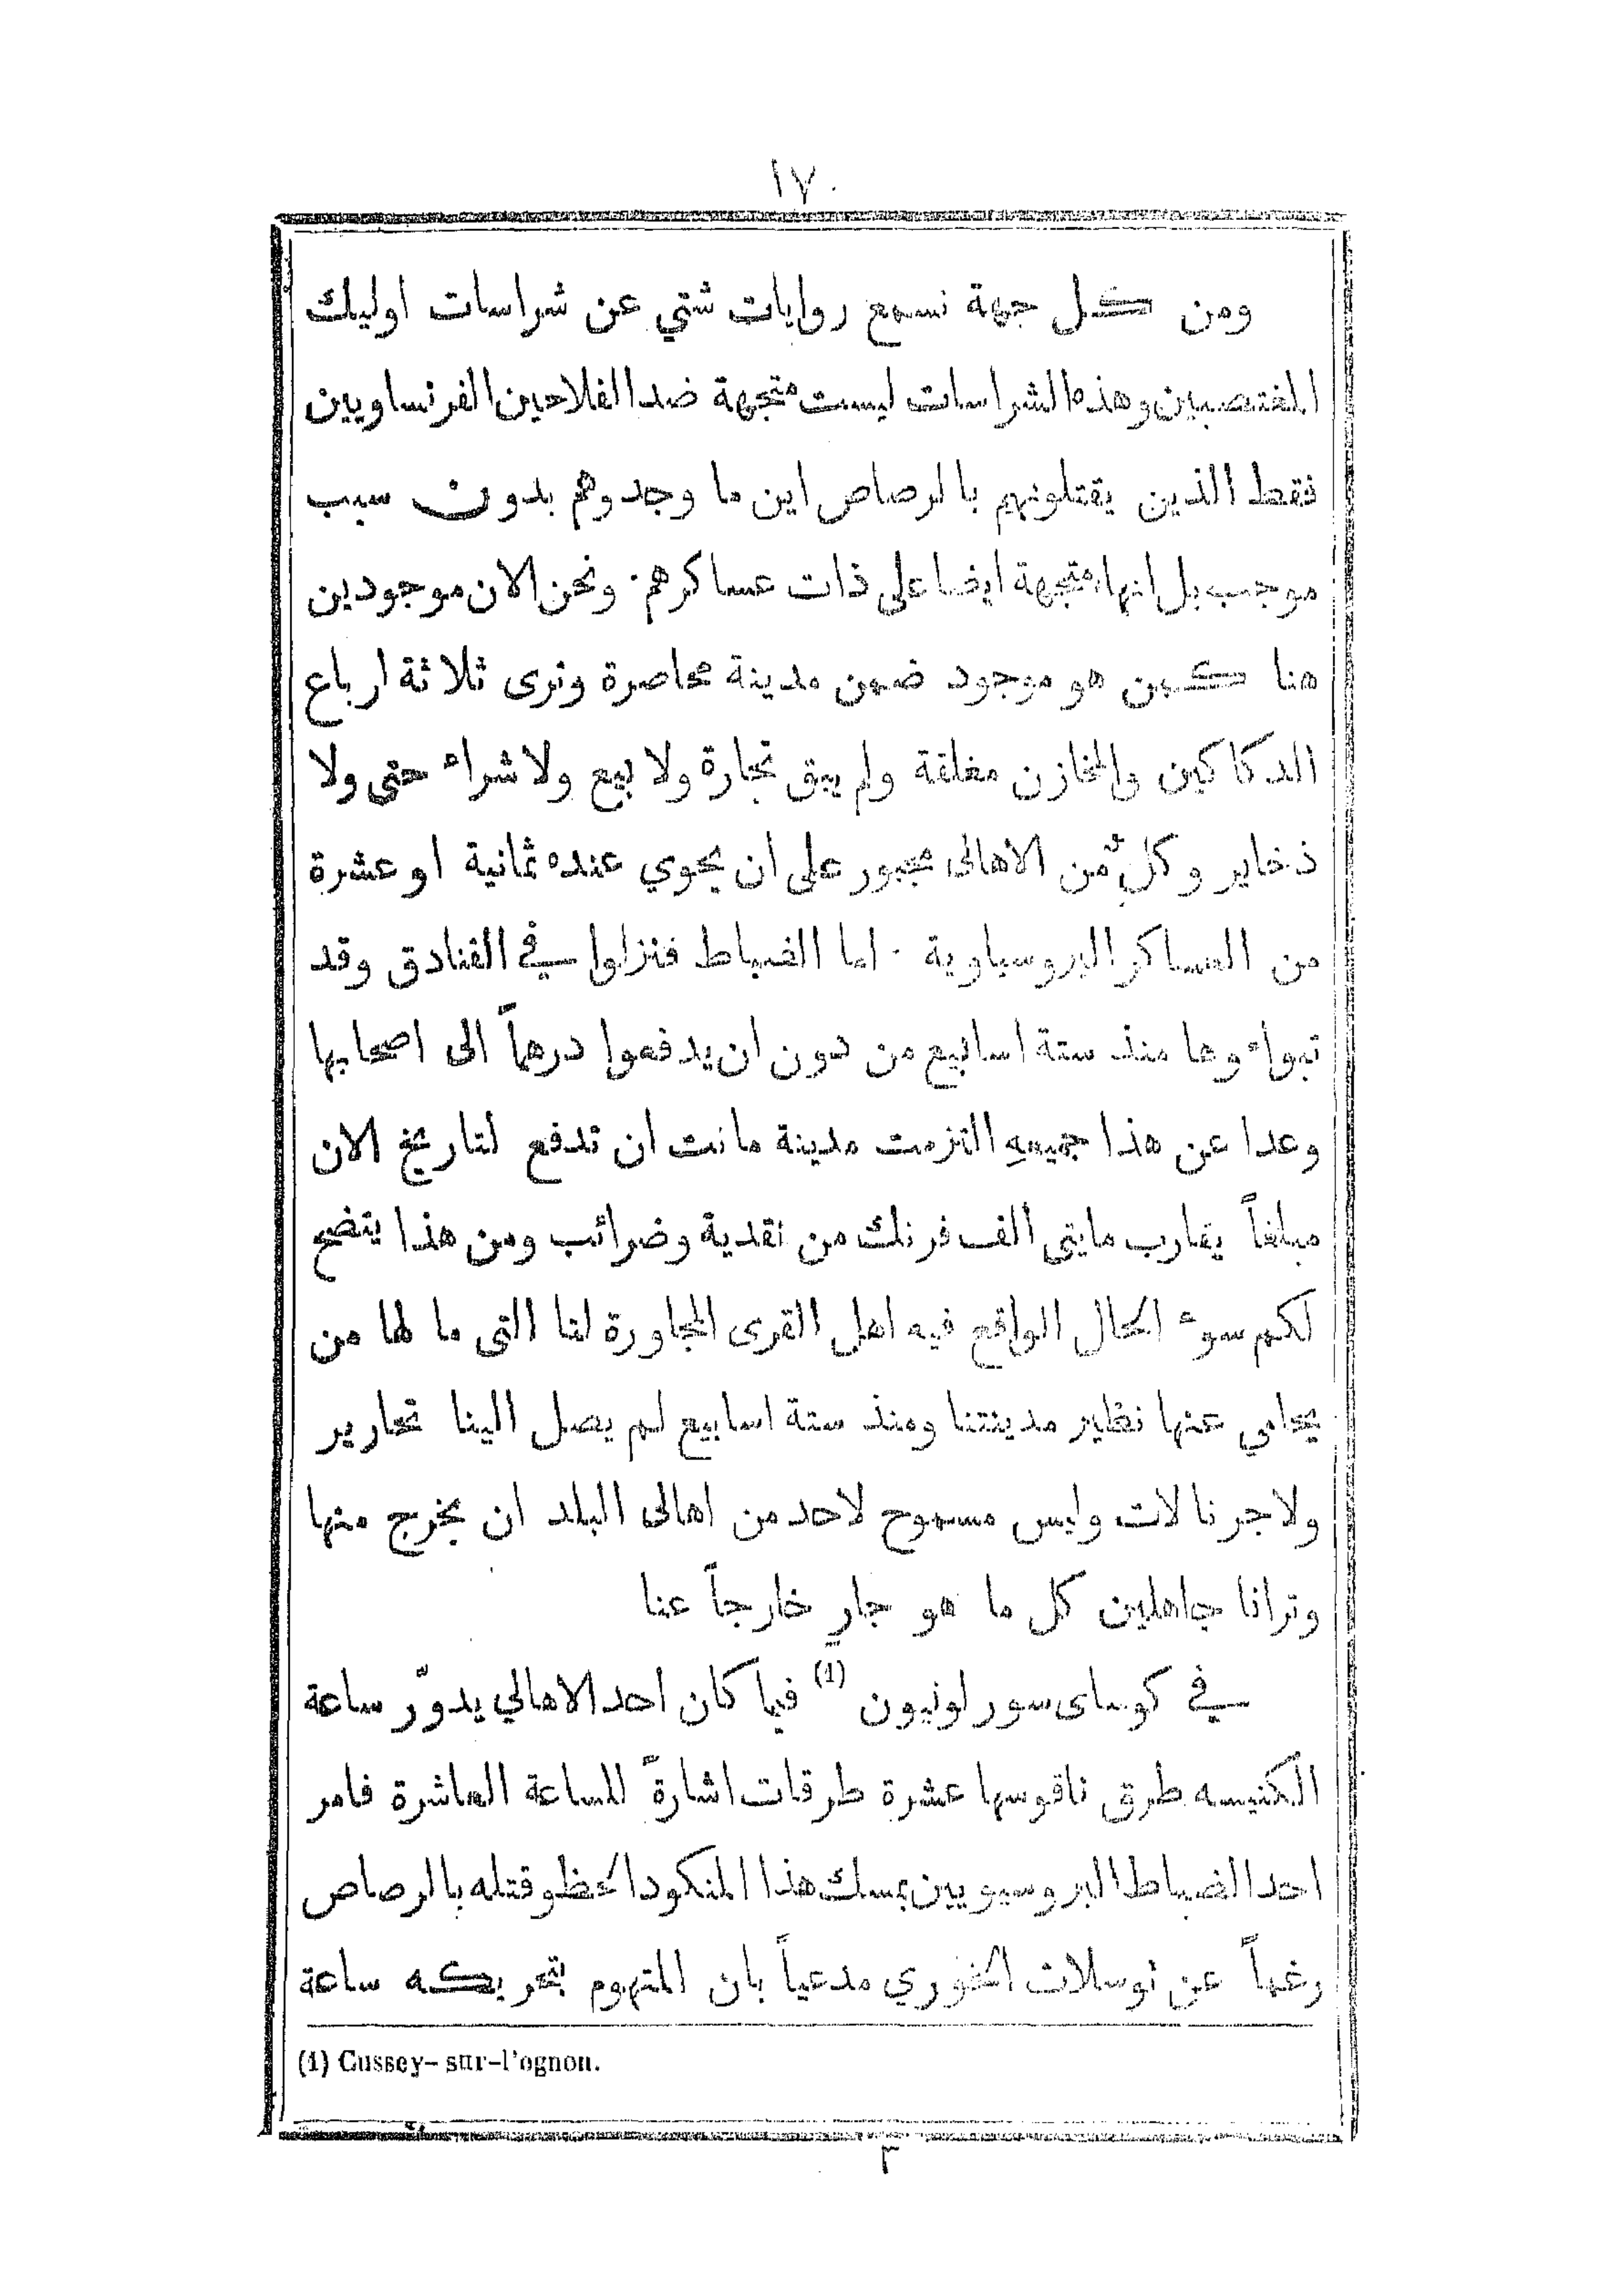 ١٧
ومن كل جهة نسمع روايات شتي عن شراسات اوليك
المغتصبين وهذه الشراسات ليست متجهة ضد الفلاحين الفرنساويين
فقط الذين يقتلونهم بالرصاص اين ما وجدوهم بدون سبب
موجب بل انها متجهة ايضا على ذات عساكرهم · ونحن الان موجودين
هنا كمن هو موجود ضمن مدينة محاصرة ونرى ثلاثة ارباع
الدكاكين والمخازن مغلقة ولم يبق تجارة ولا بيع ولا شراء حتى ولا
ذخاير وكلٌ من الاهالى مجبور على ان يحوي عنده ثمانية او عشرة
من العساكر البروسياوية · اما الضباط فنزلوا في الفنادق وقد
تبواءوها منذ ستة اسابيع من دون ان يدفعوا درهماً الى اصحابها
وعدا عن هذا جميعهِ التزمت مدينة مانت ان تدفع لتاريخ الان
مبلغاً يقارب مايتى الف فرنك من نقدية وضرائب ومن هذا يتضح
لكم سوء الحال الواقع فيه اهل القرى المجاورة لنا التى ما لها من
يحامي عنها نظير مدينتنا ومنذ ستة اسابيع لم يصل الينا تحارير
ولا جرنالات وليس مسموح لاحد من اهالى البلد ان يخرج منها
وترانا جاهلين كل ما هو جارٍ خارجاً عنا
في كوساى سور لونيون (1) فيما كان احد الاهالي يدوّر ساعة
الكنيسه طرق ناقوسها عشرة طرقات اشارةً للساعة العاشرة فامر
احد الضباط البروسيويين بمسك هذا المنكود الحظ وقتله بالرصاص
رغماً عن توسلات الخوري مدعياً بان المتهوم بتحريكه ساعة
(1) Cussey-sur-l'ognon.
٣